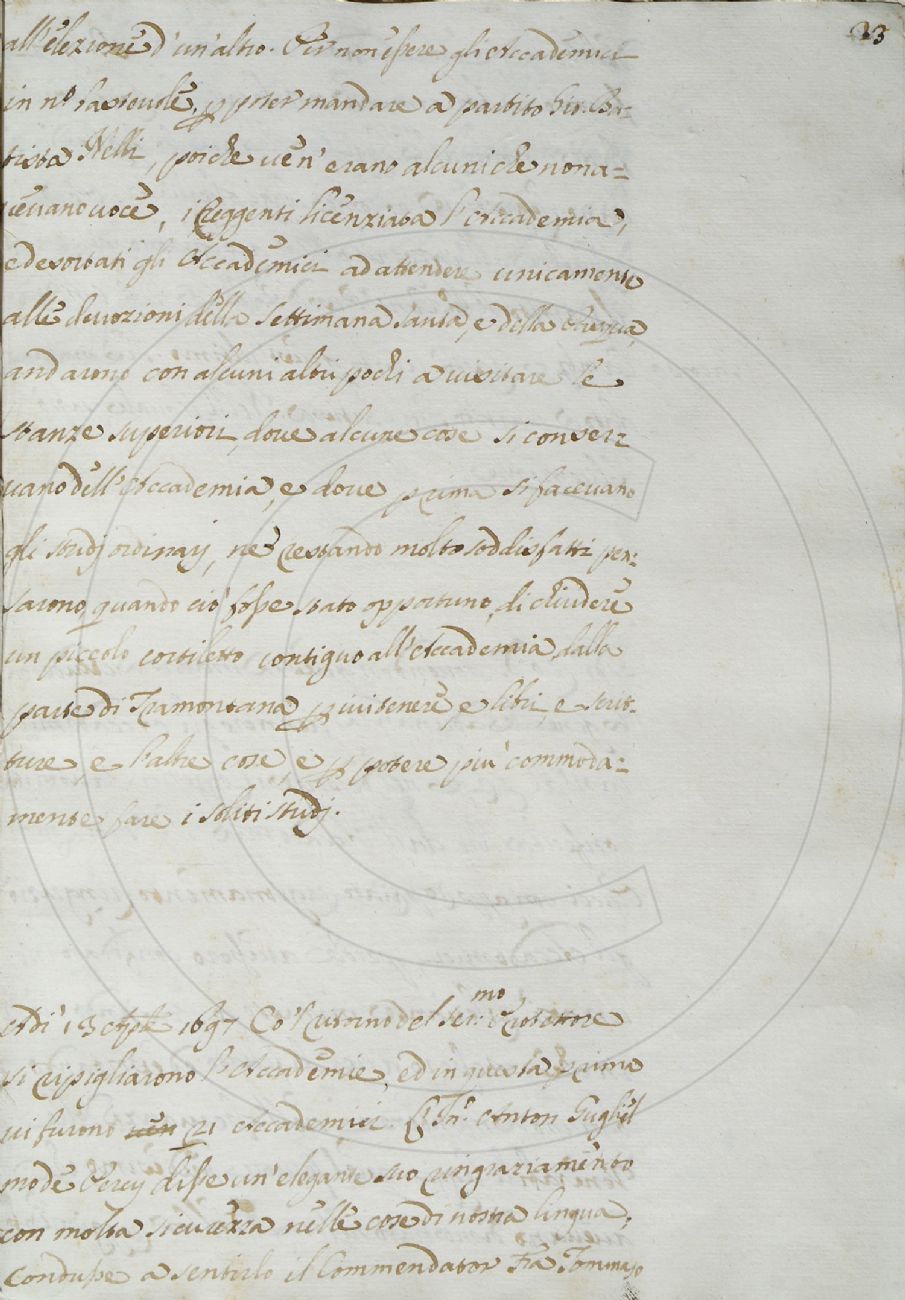 33
all'elezione d'un'altro. Per non essere gli Accademici
in n.º bastevole, p poter mandare à partito Gio. Ba=
tista Nelli, poiche ve n'erano alcuni che non a=
vevano voce, i Reggenti licenziata l'Accademia,
ed esortati gli Accademici ad attendere unicamente
alle devozioni della Settimana santa, e della
andarono con alcuni altri pochi a visitare le
stanze superiori, dove alcune cose si conser
vano dell'Accademia, e dove prima si facevano
gli studj ordinarj, nè restando molto soddisfatti pen:
sarono quando ciò fosse stato opportuno, di chiudere
un piccolo cortiletto contiguo all'Accademia, dalla
parte di Tramontana p ivi tenere e libri, e scrit=
ture e l'altre cose e p potere più commoda=
mente fare i soliti studj.
Adì 13 Aple 1697 Co'l ritorno del Ser.mo Protettore
si ripigliarono l'Accademie, ed in questa prima
vi furono 21 Accademici. Il Sig.r Anton Gugliel
mo de disse un'elegante suo ringraziamento
con molta sicurezza nelle cose di nostra lingua,
Condusse a sentirlo il Commendator Fra Tommaso